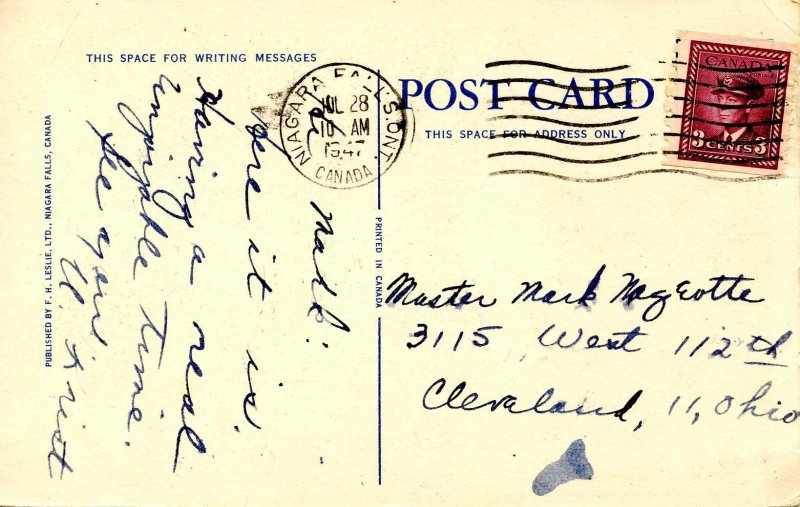 THIS SPACE FOR WRITING MESSAGES
POST CARD
THIS SPACE FOR ADDRESS ONLY
NIAGARA FALLS, ONT.
JUL 28
10 AM
1947
CANADA
CANADA
3 CENTS 3
PUBLISHED BY F. H. LESLIE, LTD., NIAGARA FALLS, CANADA
PRINTED IN CANADA
Mark:
Here it is.
Having a real
Enjoyable time.
See you
U.
Master Mark Nageotte
3115 West 112th
Cleveland, 11, Ohio